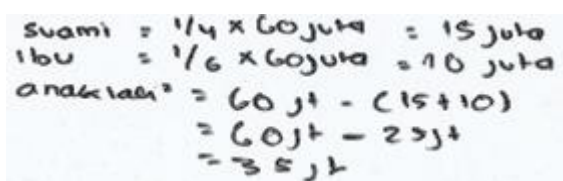 suami = 1/4 x 60 juta = 15 juta
ibu = 1/6 x 60 juta = 10 juta
anak laki² = 60 jt - (15+10)
= 60 jt - 25 jt
= 35 jt